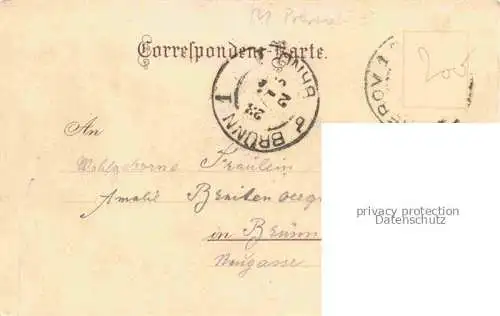 Correspondenz-Karte.
BRÜNN 1
BRNO
EROV 1
200
An
Wohlgeborne Fräulein
Amalie
in Brünn
Neugasse
privacy protection
Datenschutz